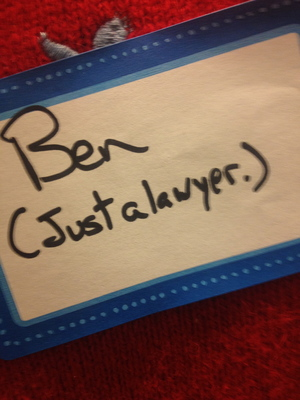 Ben
(Just a lawyer.)